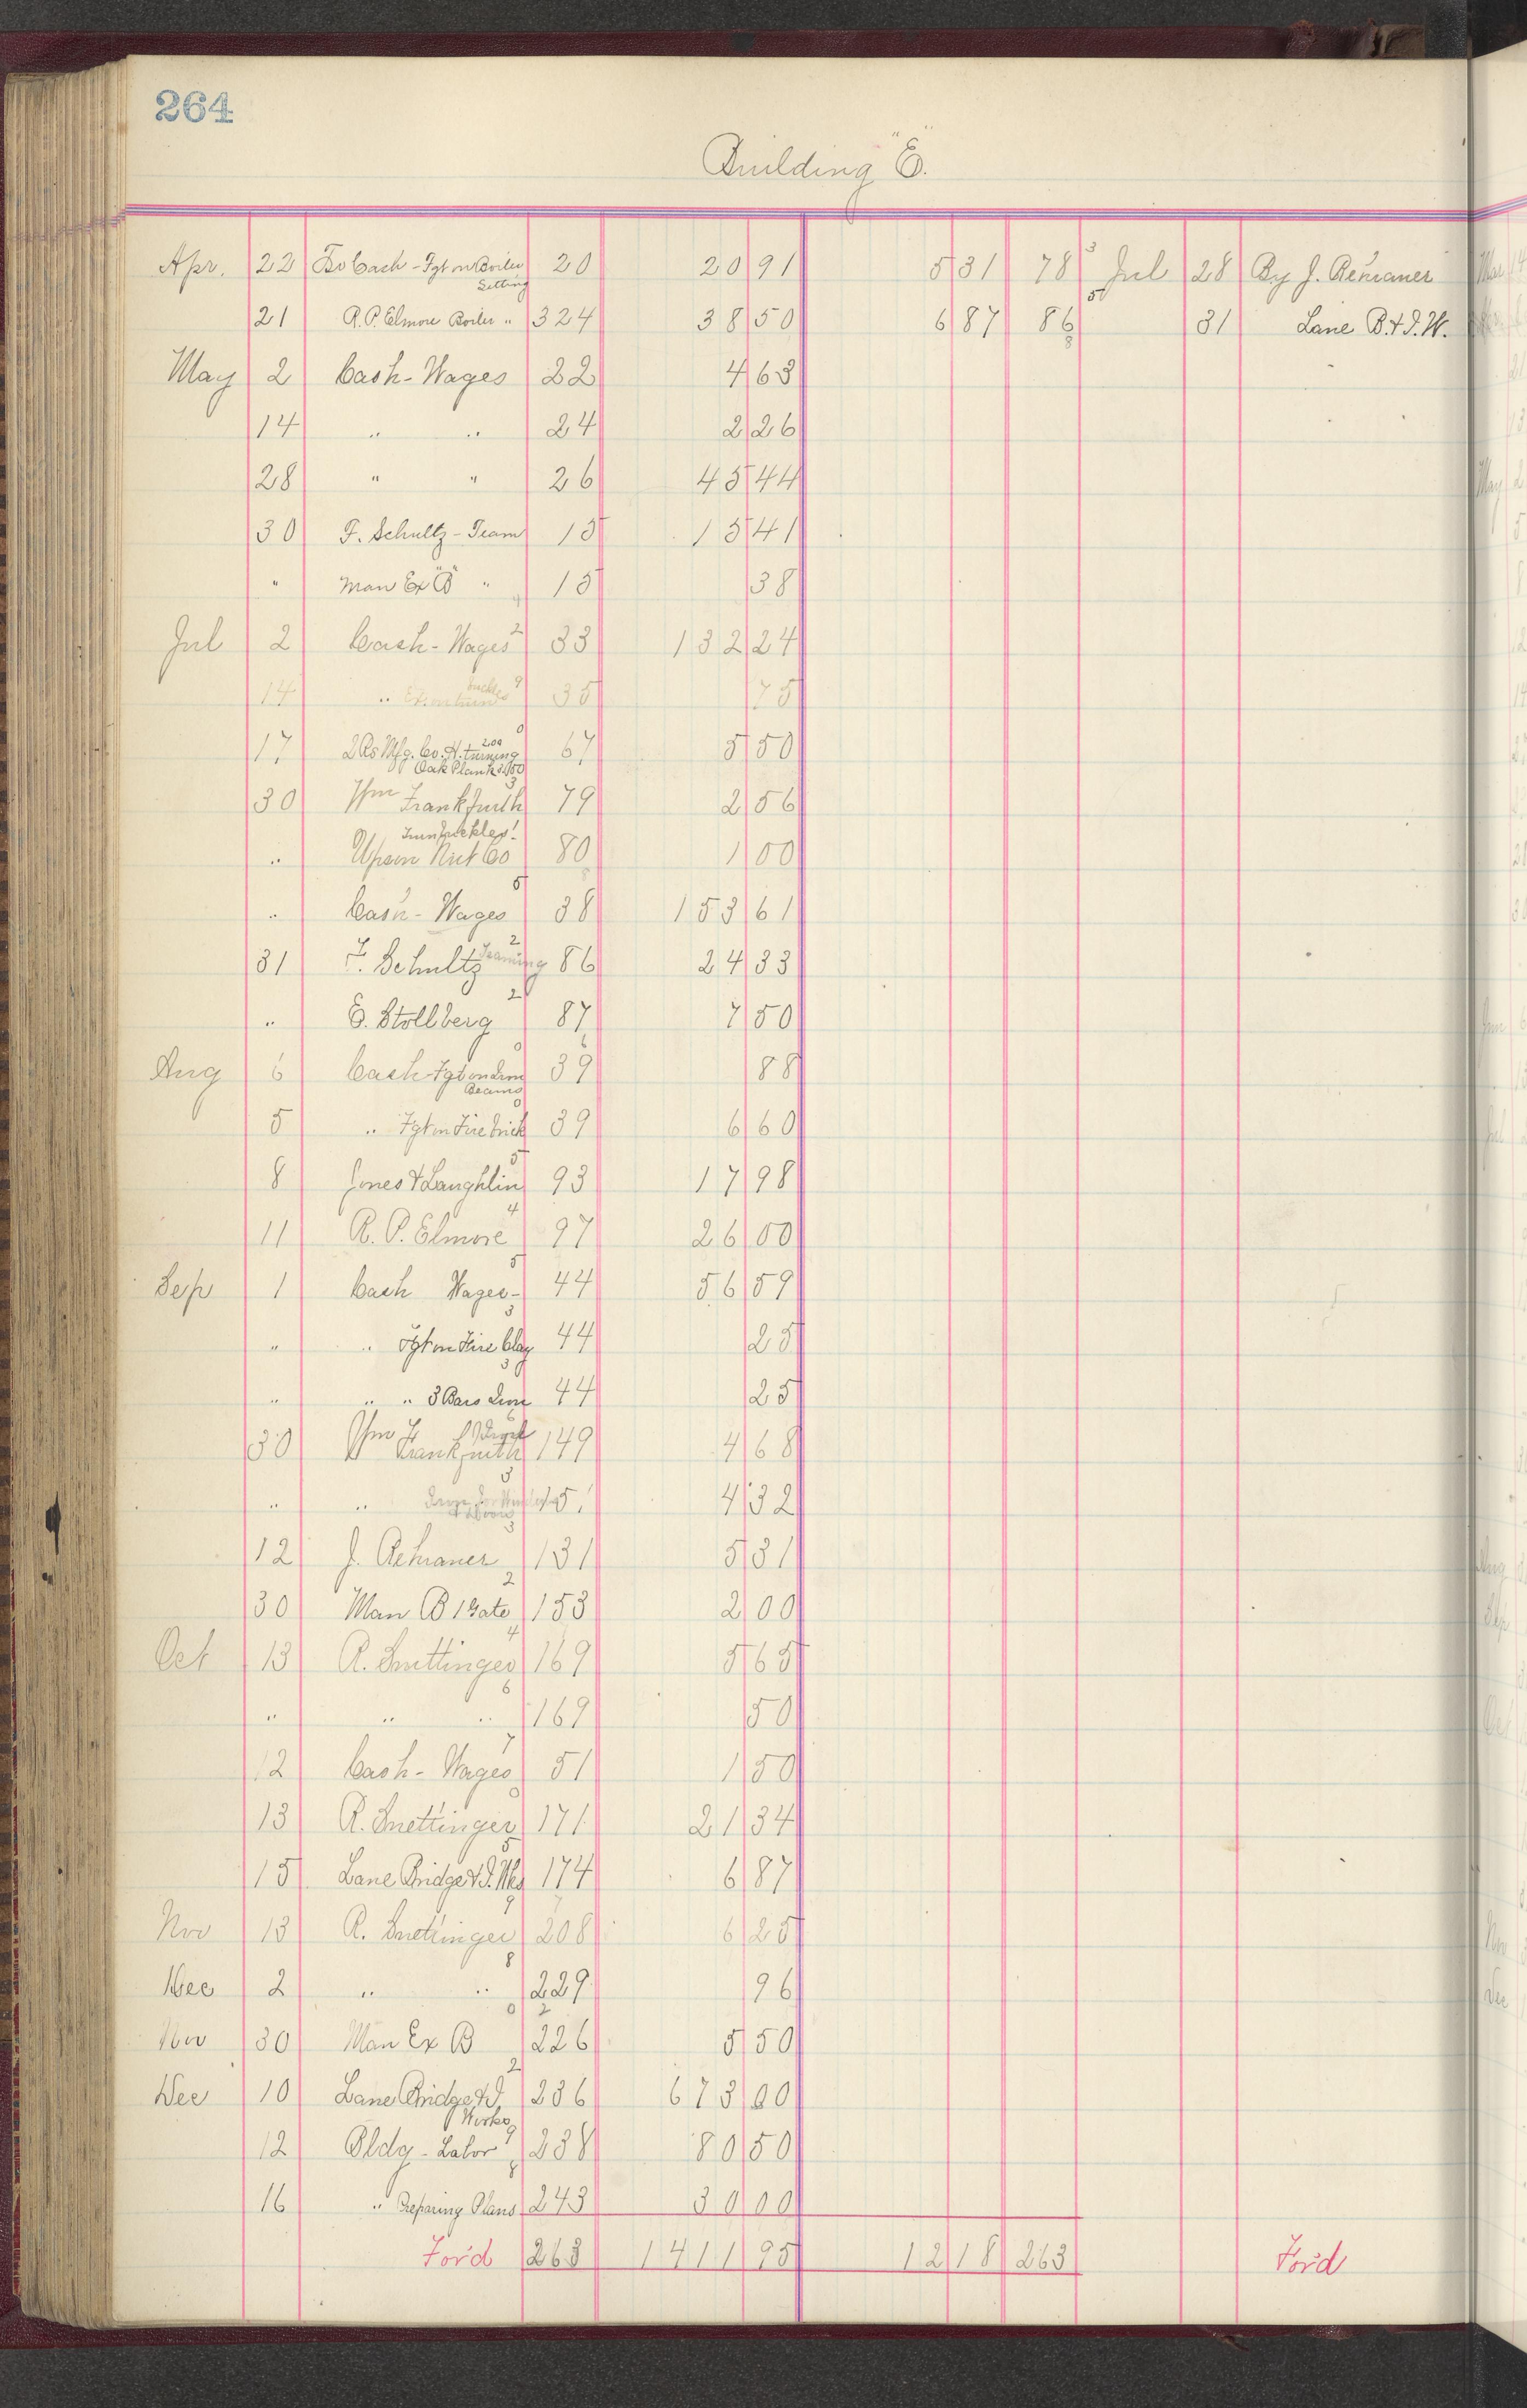 264
Building "E".
Apr. 22 To Cash - Fgt on Boiler Setting 20 20 91 5 31 78 Jul 28 By J. Rehraner
21 R. P. Elmore Boiler " 324 38 50 6 87 86 31 Lane B. & I. W.
May 2 Cash - Wages 22 4 63
14 " " 24 2 26
28 " " 26 45 44
30 F. Schultz - Team 15 15 41
" Man Ex "B" " 15 38
Jul 2 Cash - Wages 33 132 24
14 " 35 75
17 Mfg. Co. H. turning 2.00 Oak Plank 3.50 67 5 50
30 Wm Frankfurth 79 2 56
" Upson Nut Co Turnbuckles 80 1 00
" Cash - Wages 38 153 61
31 F. Schultz Teaming 86 24 33
" E. Stollberg 87 7 50
Aug 6 Cash - Fgt on Iron Beams 39 88
5 " Fgt on Fire brick 39 6 60
8 Jones & Laughlin 93 17 98
11 R. P. Elmore 97 26 00
Sep 1 Cash Wages - 44 56 59
" " Fgt on Fire Clay 44 25
" " " 3 Bars Iron 44 25
30 Wm Frankfurth 149 4 68
" " 151 4 32
12 J. Rehraner 131 5 31
30 Man B 1 Gate 153 2 00
Oct 13 R. Snettinger 169 5 65
" " " 169 50
12 Cash - Wages 51 1 50
13 R. Snettinger 171 21 34
15 Lane Bridge & I. Wks 174 6 87
Nov 13 R. Snettinger 208 6 25
Dec 2 " " 229 96
Nov 30 Man Ex B 226 5 50
Dec 10 Lane Bridge & I. Works 236 673 00
12 Bldg - Labor 238 80 50
16 " Preparing Plans 243 30 00
For'd 263 1411 95 12 18 263 For'd